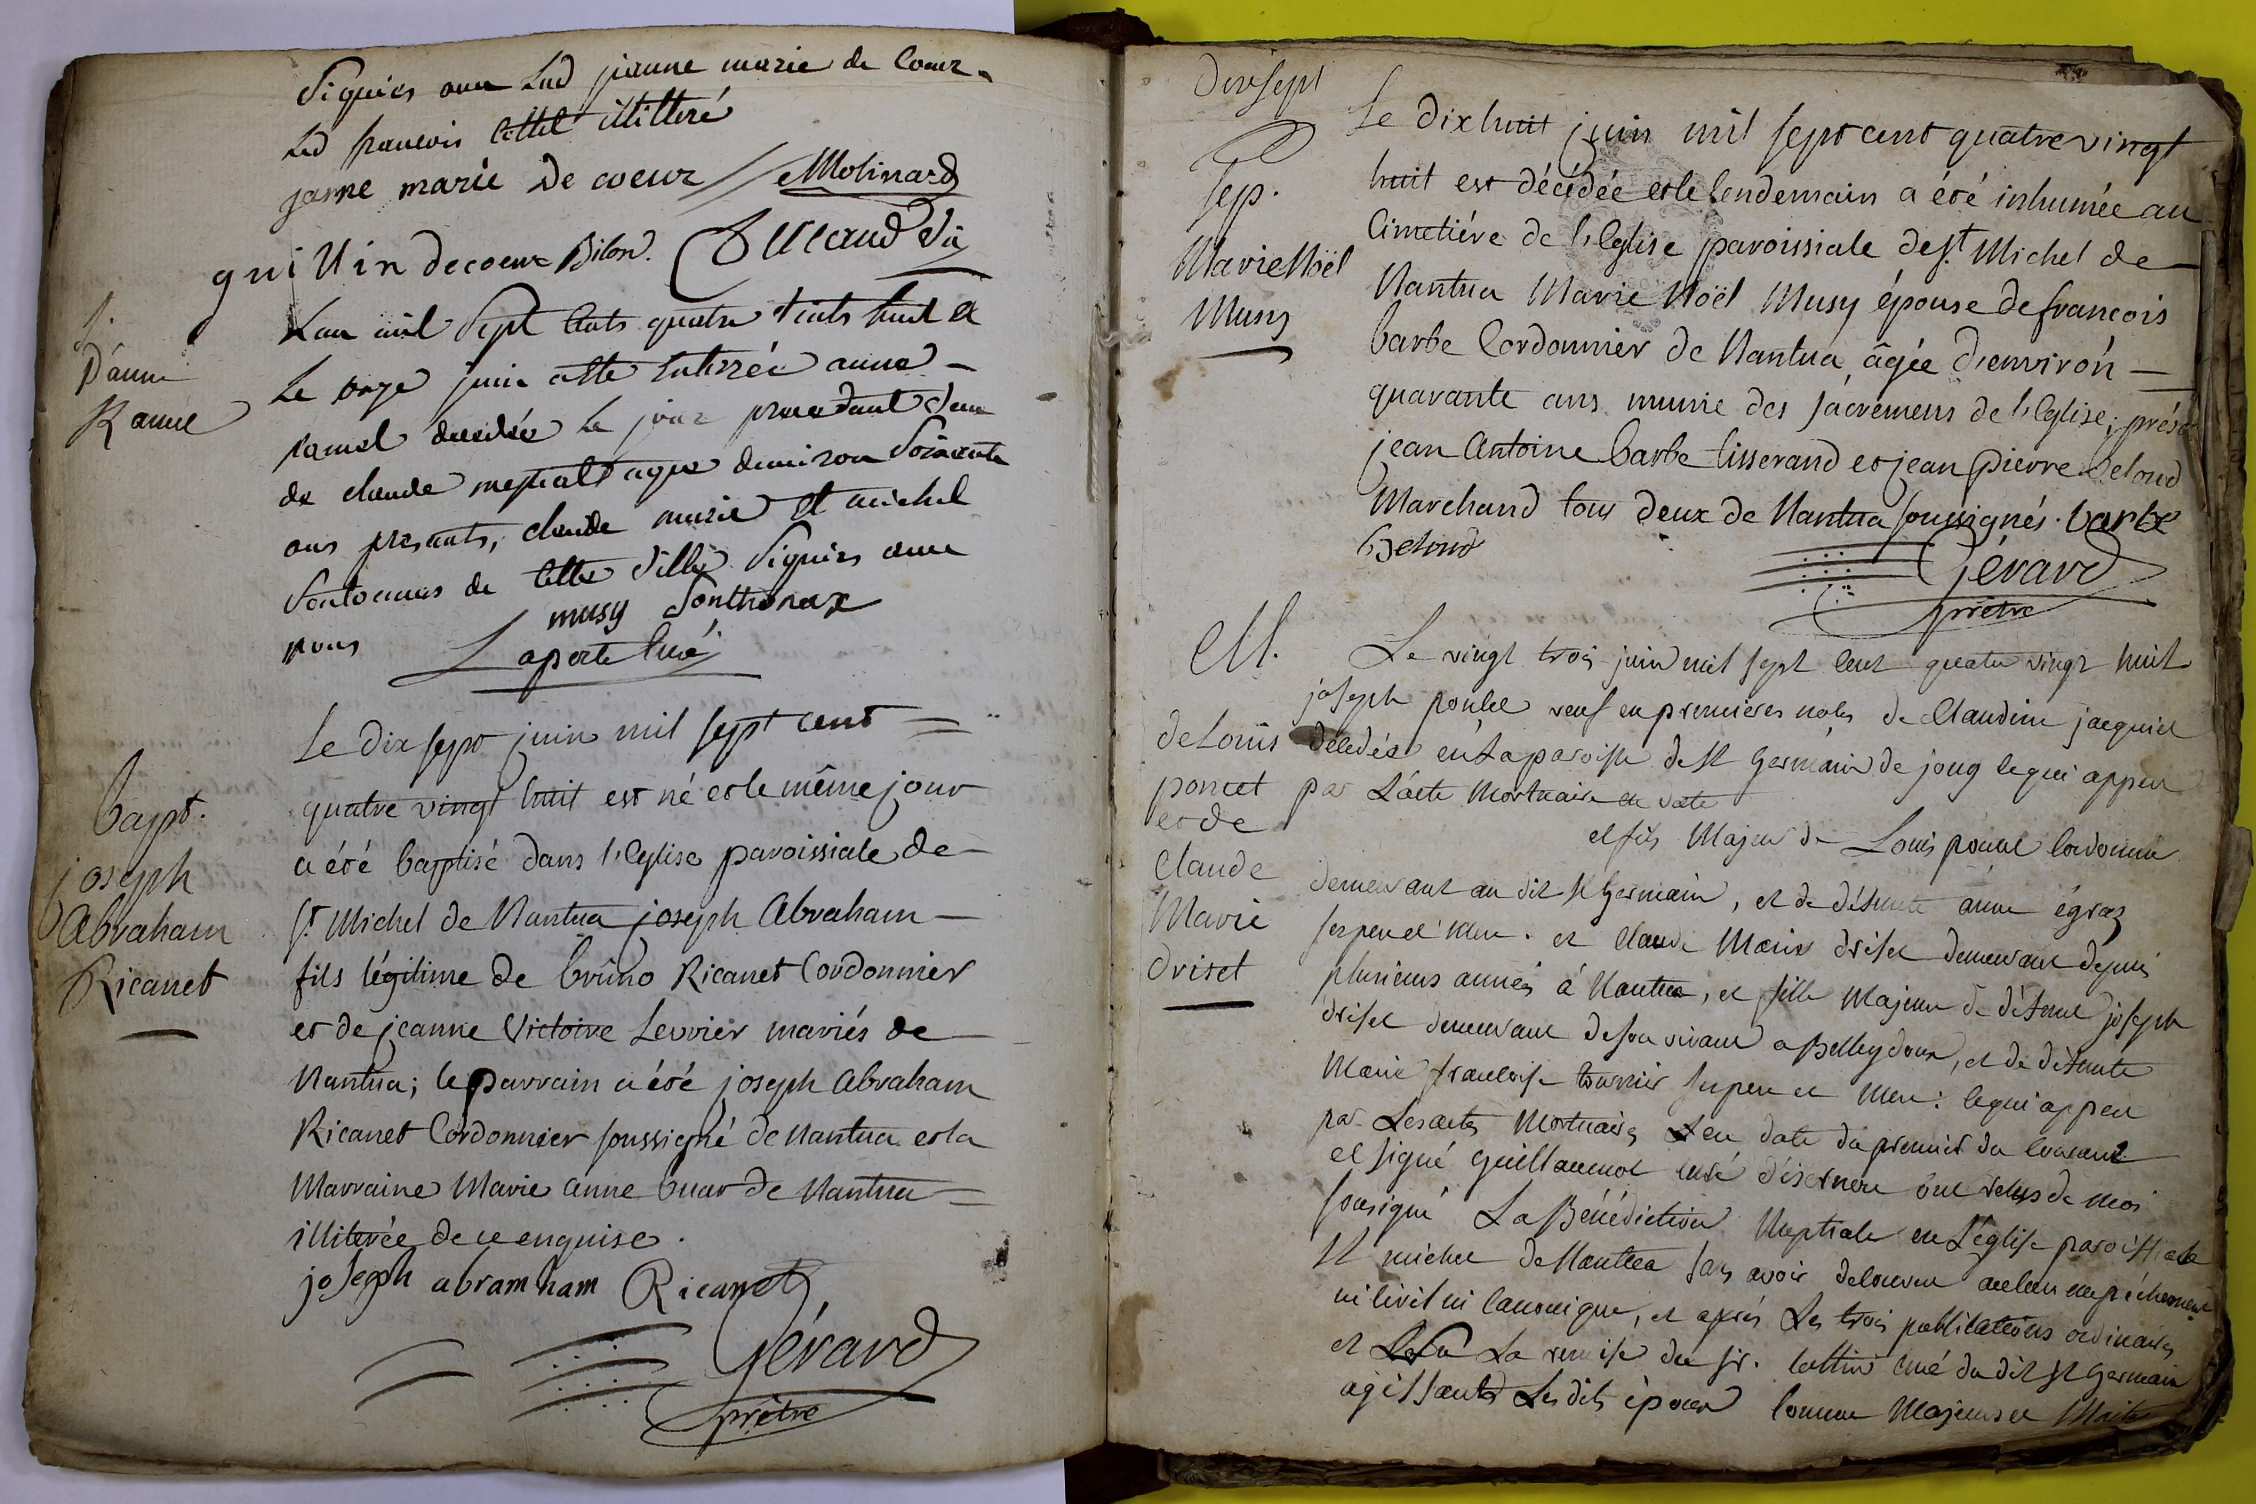 signés avec Lad jeanne marie de Coeur.
Led francois cottel illitteré
janne marie de coeur // Molinard
quillin decoeur Bilon.
S.
D'anne
Ramel
L'an mil sept cents quatre vints huit et
Le onze juin a ette enterrée anne
ramel decedée Le jour precedant veuve
de claude mestrallt agée d'environ soixante
ans presents, claude musie et michel
sontonas de cette ville signés avec
nous musy Sonthonax
Laporte Curé
bapt.
joseph
Abraham
Ricanet
Le dix sept juin mil sept cent
quatre vingt huit est né et le même jour
a été baptisé dans l'Eglise paroissiale de
St. Michel de Nantua joseph Abraham
fils légitime de brûno Ricanet Cordonnier
et de jeanne Victoire Levrier mariés de
Nantua; le parrain a été joseph Abraham
Ricanet Cordonnier soussigné de Nantua et la
Marraine Marie anne buar de Nantua
illiterée de ce enquise.
joseph abramham Ricanet
Gérard
prêtre
Dix sept
Sep.
Marie Noël
Musy
Le dixhuit juin mil sept cent quatre vingt
huit est décédée et le lendemain a été inhumée au
Cimetiére de l'Eglise paroissiale de St. Michel de
Nantua Marie Noël Musy épouse de francois
barbe Cordonnier de Nantua, âgée d'environ
quarante ans munie des sacremens de l'Eglise; présens
jean Antoine barbe tisserand et jean pierre Deloud
Marchand tous deux de Nantua soussignés. barbe
Deloud
Gérard
prêtre
M.
de Louis
poncet
et de
Claude
Marie
driset
Le vingt trois juin mil sept cent quatre vingt huit
joseph poncet veuf en premières noces de Claudine jacquiet
décédée en La paroisse de St Germain de joug ce qui appert
par L'acte Mortuaire en date
et fils Majeur de Louis poncet cordonnier
demeurant au dit St Germain, et de défunte anne égraz
ses pere et mere. et Claude Marie driset demeurant depuis
plusieurs années à Nantua, et fille Majeure de défunt joseph
driset demeurant de son vivant a Belleydoux, et de défunte
Marie francoise tournier ses pere et Mere: ce qui appert
par Les actes Mortuaires en date du premier du courant
et signé Guillaumot curé d'échallon ont reçus de moi
sousigné La Bénédiction Nuptiale en L'église paroissiale
St michel de Nantua sans avoir decouvert aucun empéchement
ni civil ni canonique, et aprés Les trois publications ordinaires
et La remise du sr. cottin curé du dit St Germain
agissants Les dits époux comme Majeurs et Maitres